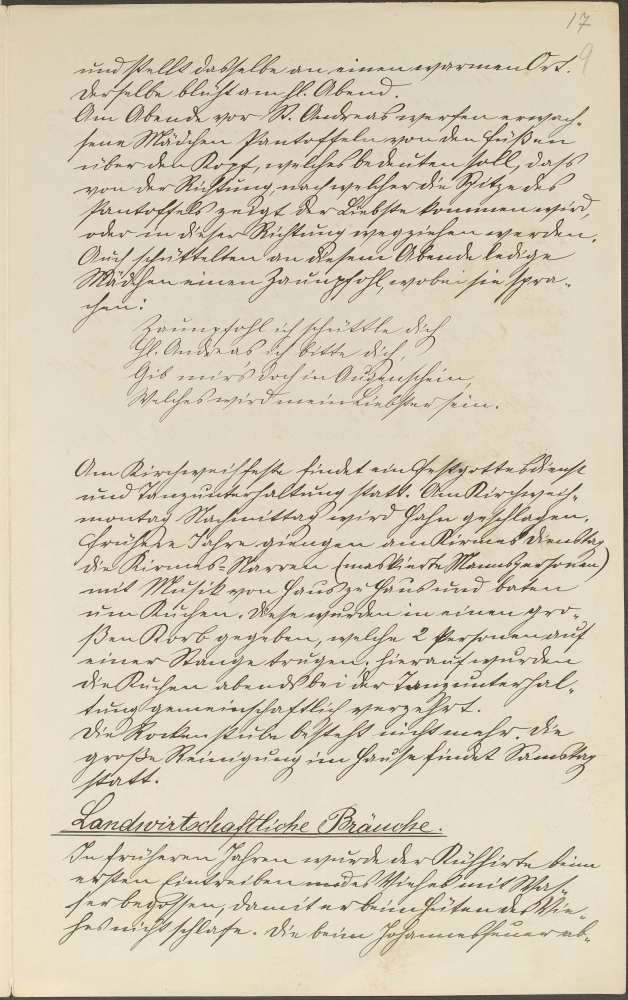 17
9
und stellt dasselbe an einen warmen Ort.
Derselbe blüht am hl. Abend.
Am Abende vor St. Andreas werfen erwach-
sene Mädchen Pantoffeln von den Füßen
über den Kopf, welches bedeuten soll, dass
von der Richtung, nach welcher die Spitze des
Pantoffels zeigt der Liebste kommen wird,
oder in dieser Richtung wegziehen werden.
Auch schüttelten an diesem Abende ledige
Mädchen einen Zaunpfohl, wobei sie spra-
chen:
Zaunpfohl ich schüttle dich
Hl. Andreas ich bitte dich,
Gib mir's doch in Augenschein,
Welches wird mein Liebster sein.
Am Kirchweihfeste findet ein Festgottesdienst
und Tanzunterhaltung statt. Am Kirchweih-
montag Nachmittag wird Hahn geschlagen.
Frühere Jahre giengen am Kirmes Dienstag
die Kirmes-Narren (maskierte Mannspersonen)
mit Musik von Haus zu Haus und baten
um Kuchen. Diese wurden in einen gro-
ßen Korb gegeben, welche 2 Personen auf
einer Stange trugen. Hierauf wurden
die Kuchen abends bei der Tanzunterhal-
tung gemeinschaftlich verzehrt.
Die Rockenstube besteht nicht mehr. Die
große Reinigung im Hause findet Samstag
statt.
Landwirtschaftliche Bräuche.
In früheren Jahren wurde der Kühhirte beim
ersten Eintreiben des Viehes mit Was-
ser begossen, damit er beim Hüten des Vie-
hes nicht schlafe. Die beim Johannesfeuer ab-